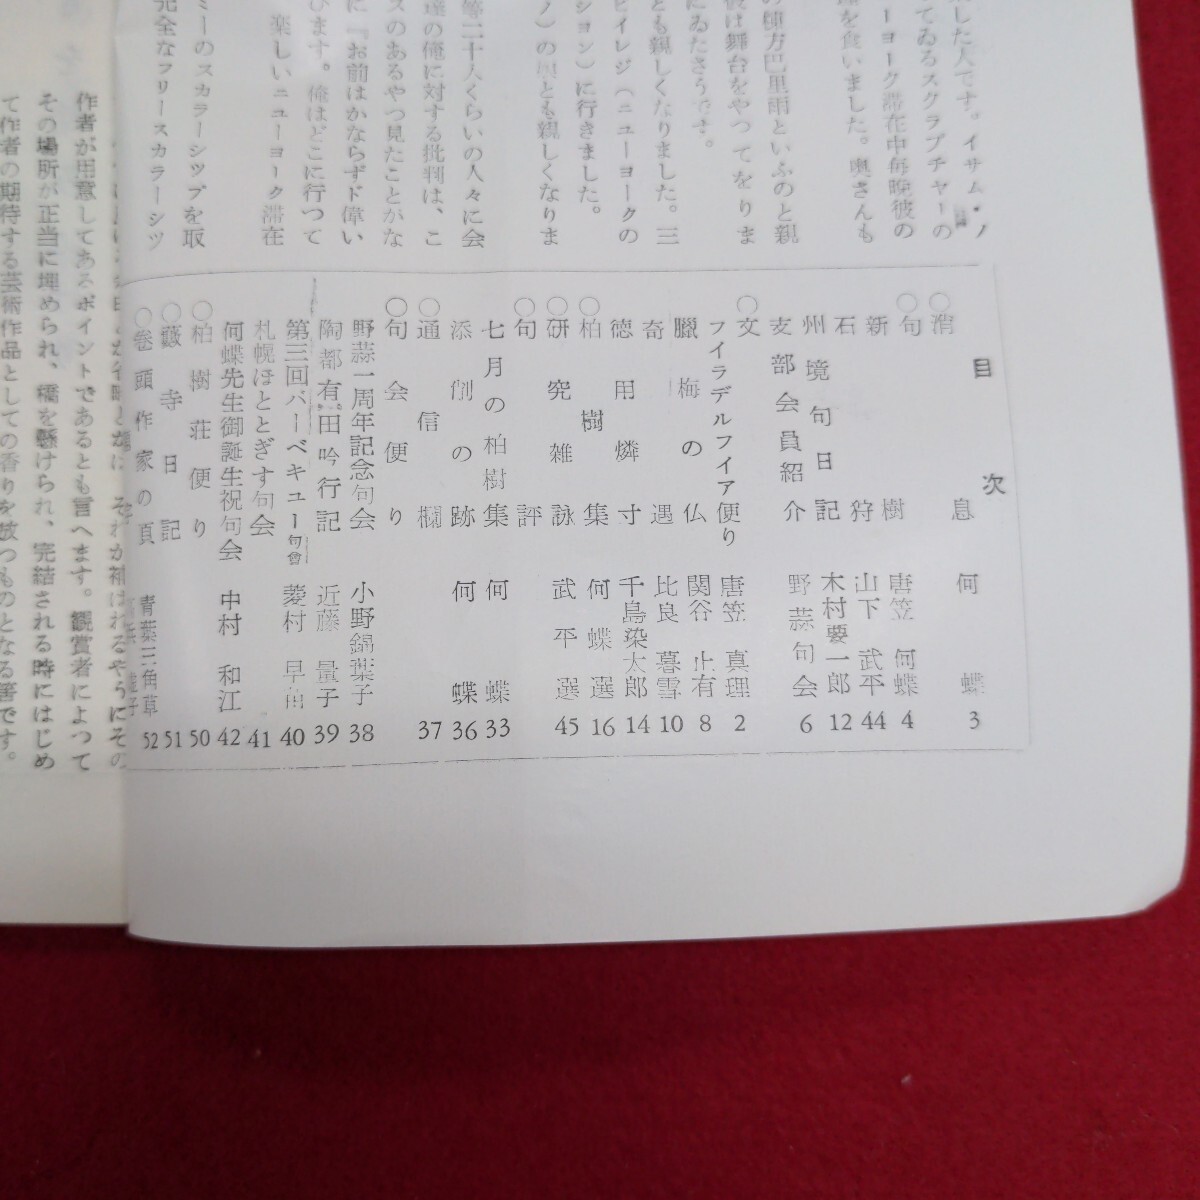 した人です。イサム・ノ
てゐるスクラプチャーの
ーヨーク滞在中毎晩彼の
を食いました。奥さんも
の棟方巴里雨といふのと親
彼は舞台をやつてをりま
にゐたさうです。
とも親しくなりました。三
ビイレジ（ニューヨークの
ション）に行きました。
ノ）の奥とも親しくなりま
等二十人くらいの人々に会
達の俺に対する批判は、こ
スのあるやつ見たことがな
に『お前はかならずド偉い
びます。俺はどこに行つて
楽しいニューヨーク滞在
ミーのスカラーシツプを取
完全なフリースカラーシツ
目次
○消息 何蝶 3
○句樹 唐笠何蝶 4
新狩 山下武平 44
石記 木村要一郎 12
州境句日
支部会員紹介 野蒜句会 6
○文
フイラデルフイア便り 唐笠真理 2
臘梅の仏 関谷止有 8
奇遇 比良暮雪 10
徳用燐寸 千島染太郎 14
○柏樹集 何蝶選 16
○研究雑詠 武平選 45
○句評
七月の柏樹集 何蝶 33
添削の跡 何蝶 36
○通信欄 37
○句会便り
野蒜一周年記念句会 小野錦葉子 38
陶都有田吟行記 近藤量子 39
第三回バーベキュー句會 菱村早苗 40
札幌ほととぎす句会 41
何蝶先生御誕生祝句会 中村和江 42
○柏樹荘便り 50
○藪寺日記 51
○巻頭作家の頁 青葉三角草 52
作者が用意してあるポイントであるとも言へます。観賞者によつて
その場所が正当に埋められ、橋を懸けられ、完結される時にはじめ
て作者の期待する芸術作品としての香りを放つものとなる筈です。